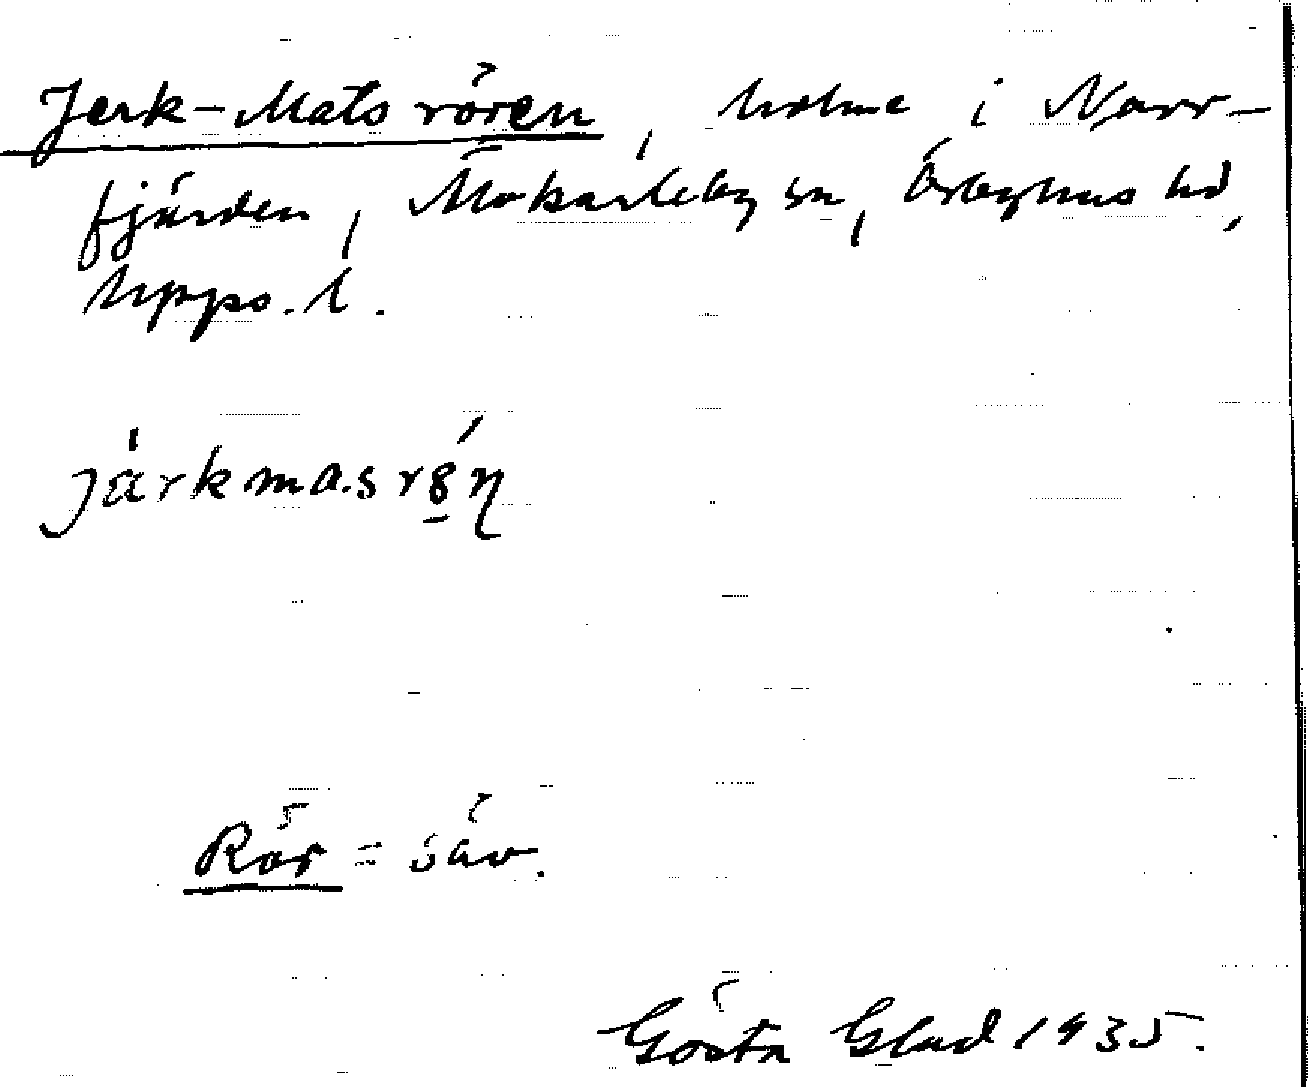 Jerk-Mats rören, holme i Norr-
fjärden, Älvkarleby sn, Örbyhus hd,
Upps. l.
järkmasrǿn
Rör = säv.
Gösta Glad 1935.